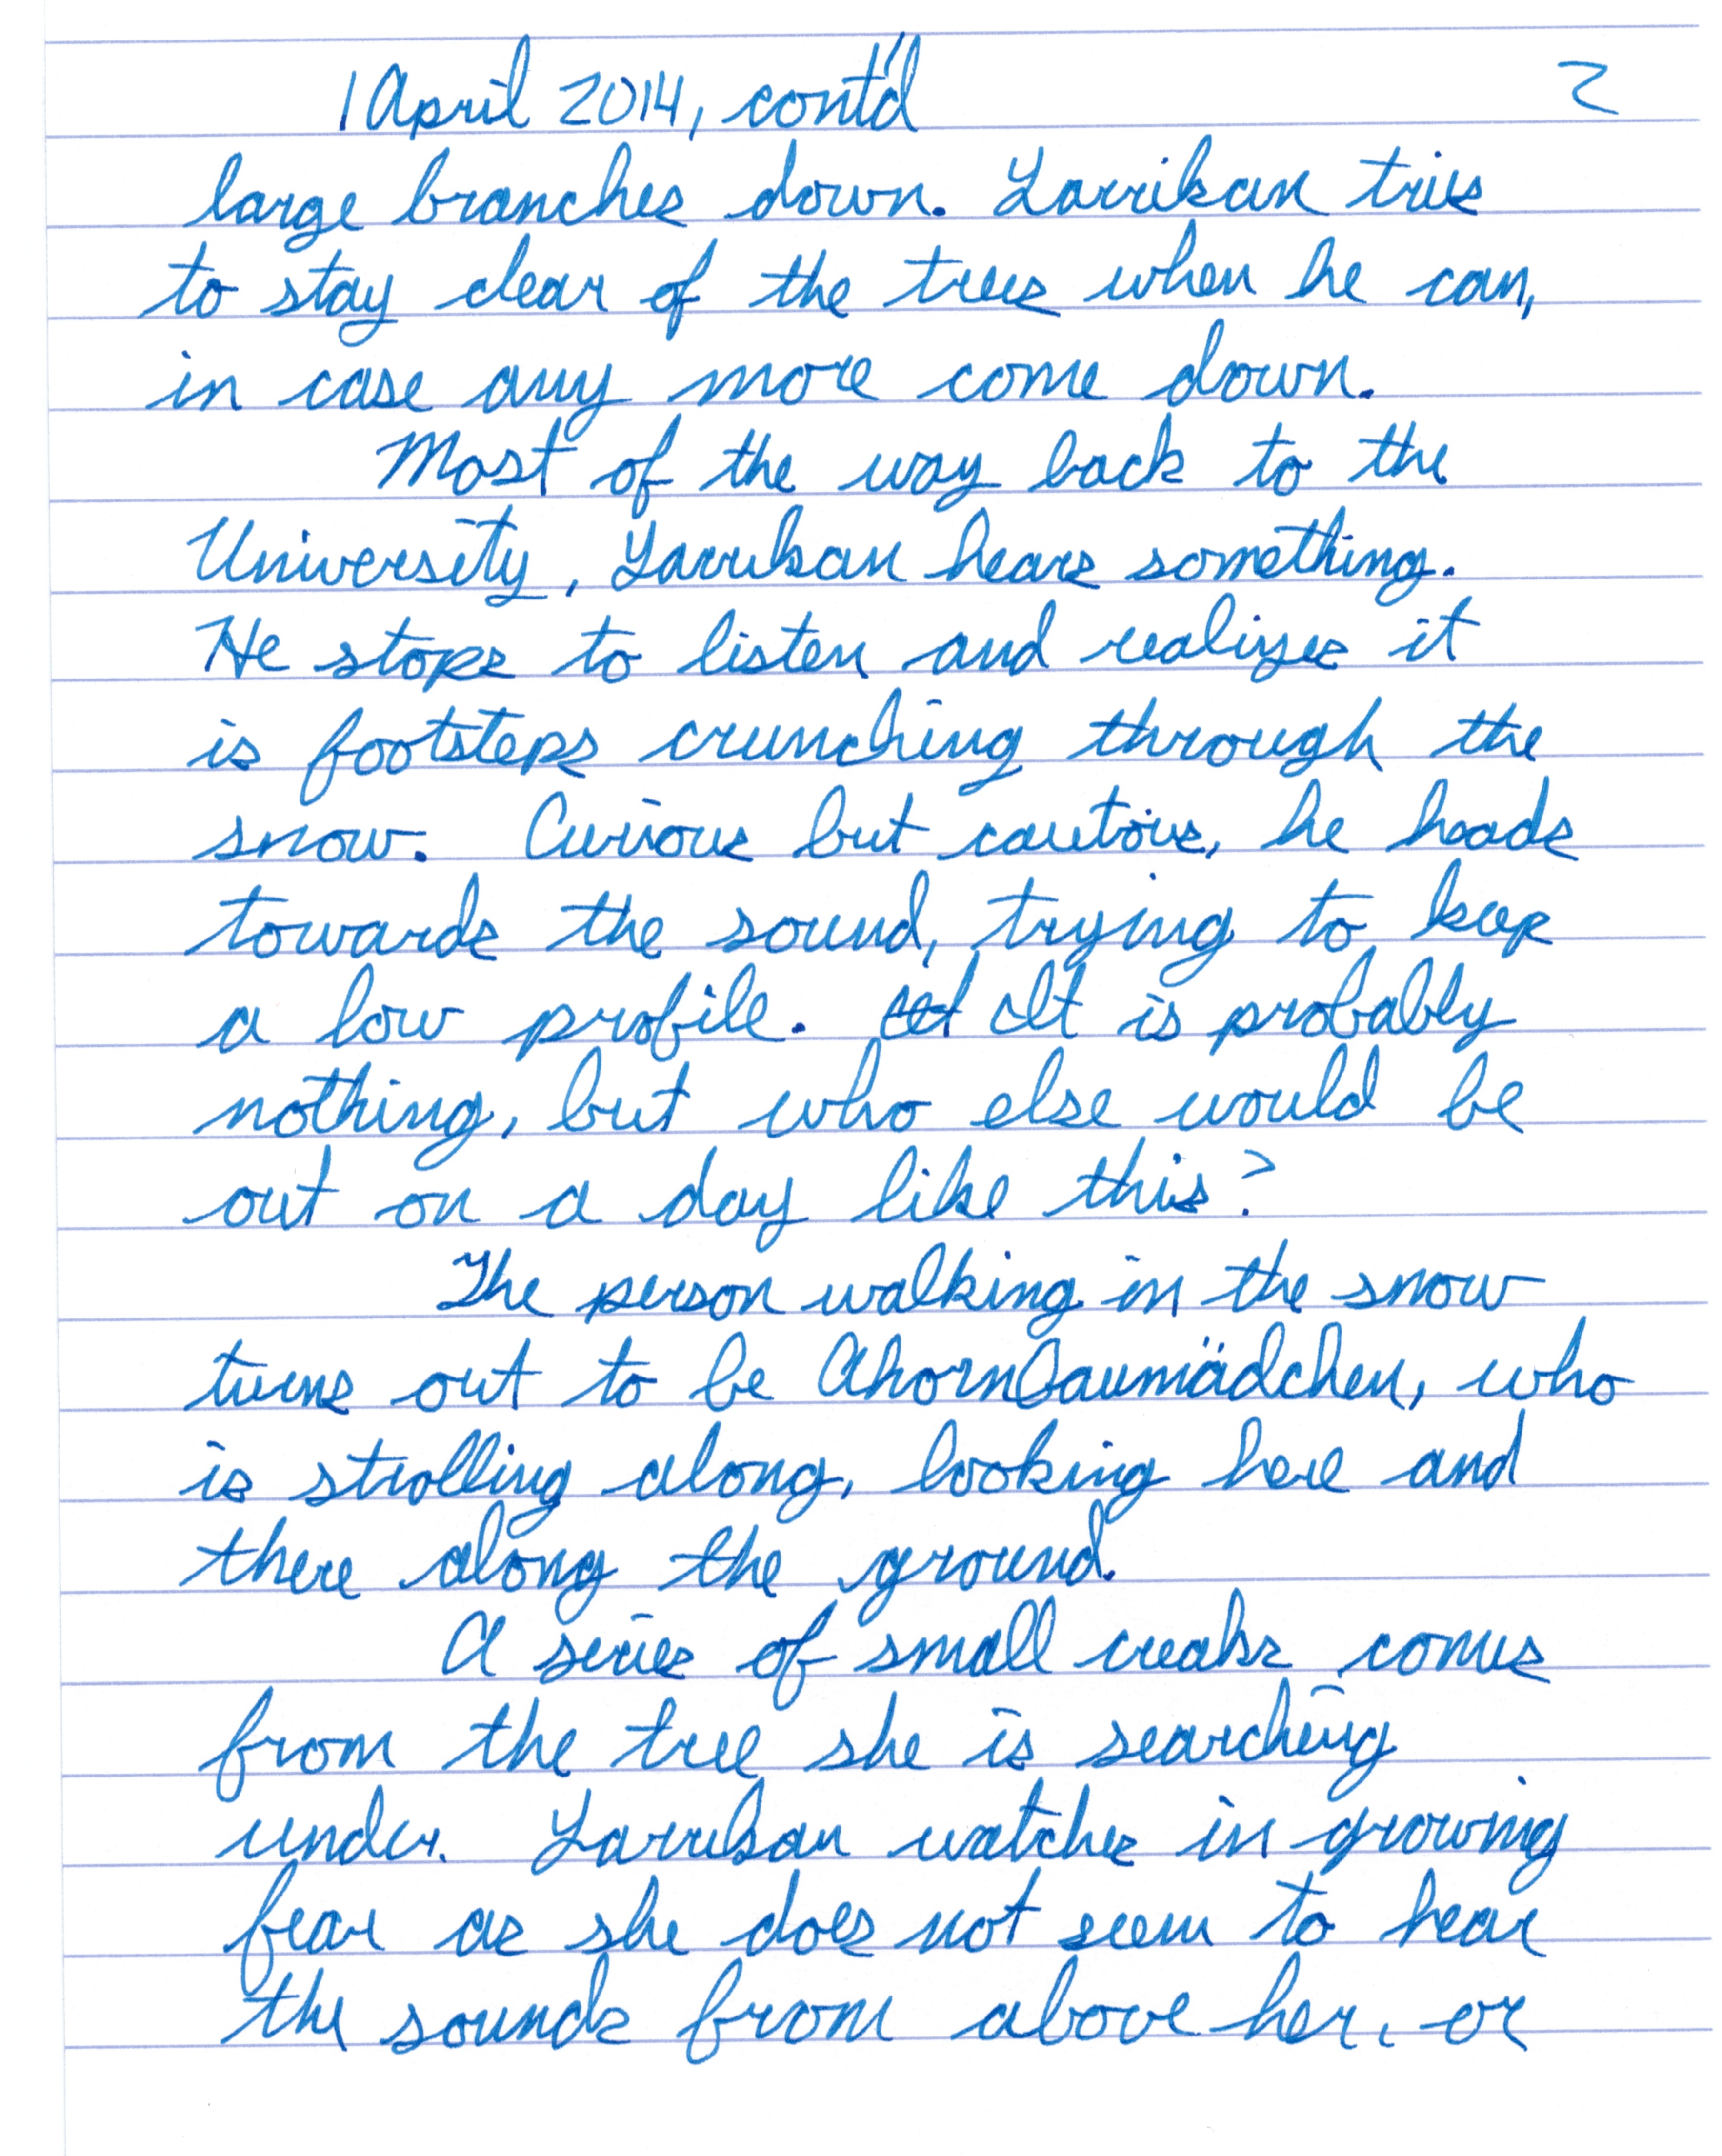 1 April 2014, cont'd 2
large branches down. Larrikan tries
to stay clear of the trees when he can,
in case any more come down.
Most of the way back to the
University, Larrikan hears something.
He stops to listen and realizes it
is footsteps crunching through the
snow. Curious but cautious, he heads
towards the sound, trying to keep
a low profile. It is probably
nothing, but who else would be
out on a day like this?
The person walking in the snow
turns out to be Ahornbaumädchen, who
is strolling along, looking here and
there along the ground.
A series of small creaks comes
from the tree she is searching
under. Larrikan watches in growing
fear as she does not seem to hear
the sounds from above her, or